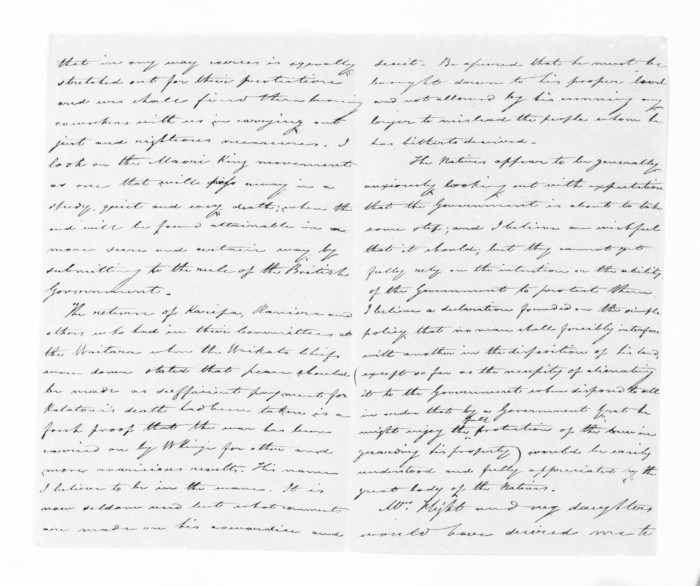 that in any way courses is equally
stretched out for their protection
and we shall find them becoming
coworkers with us in carrying out
just and righteous measures. I
look on the Maori King movement
as one that will pass away in a
speedy, quiet and easy death; when the
end will be found attainable in a
more sure and certain way by
submitting to the rule of the British
Government.
The return of Karipa, Raniera and
others who had in their Committees at
the Waitara when the Waikato Chiefs
were down stated that peace should
be made as sufficient payment for
Katatore's death had been taken is a
fresh proof that the war has been
carried on by WKingi for other and
more avaricious results. His name
I believe to be in the wane. It is
now seldom used but what comments
are made on his cowardice and
deceit. Be assured that he must be
brought down to his proper level
and not allowed by his cunning any
longer to mislead the people whom he
has hitherto deceived.
The Natives appear to be generally
anxiously looking out with expectation
that the Government is about to take
some step; and I believe are wishful
that it should; but they cannot yet
fully rely on the intention or the ability
of the Government to protect them.
I believe a declaration founded on the simple
policy that no man shall forcibly interfere
with another in the disposition of his land
(except so far as the necessity of alienating
it to the Government when disposed to sell
in order that by a Government Grant he
might enjoy the full protection of the law in
guarding his property) would be easily
understood and fully appreciated by the
great body of the Natives.
Mr. Flight and my daughters
would have desired me to